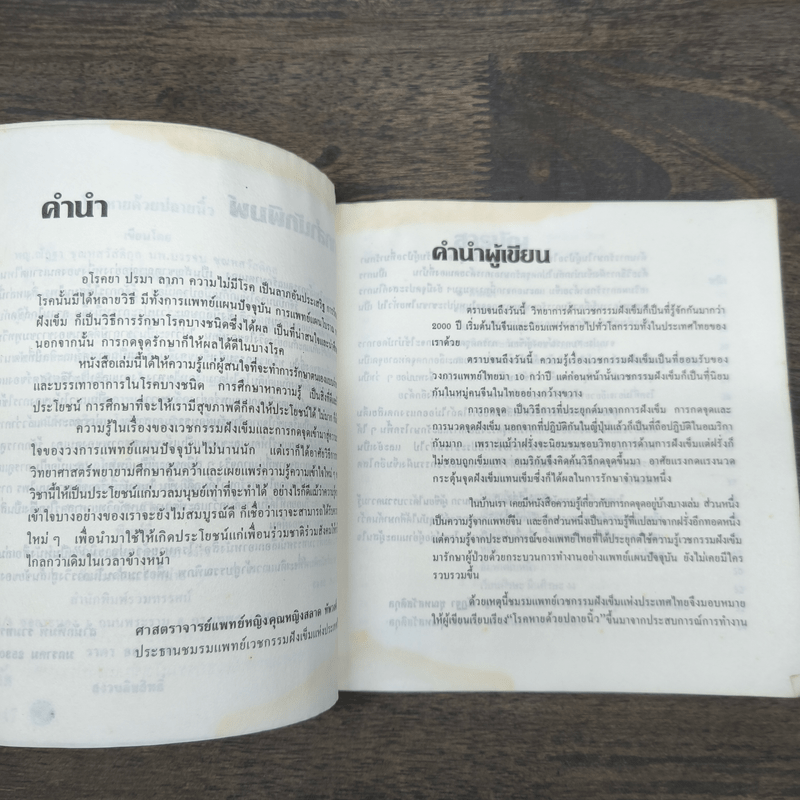 คำนำ
อโรคยา ปรมา ลาภา ความไม่มีโรค เป็นลาภอันประเสริฐ
โรคนั้นมีได้หลายวิธี มีทั้งการแพทย์แผนปัจจุบัน การแพทย์แผนโบราณ
ฝังเข็ม ก็เป็นวิธีการรักษาโรคบางชนิดซึ่งได้ผล เป็นที่น่าสนใจและ
นอกจากนั้น การกดจุดรักษาก็ให้ผลได้ดีในบางโรค
หนังสือเล่มนี้ได้ให้ความรู้แก่ผู้สนใจที่จะทำการรักษาตนเอง
และบรรเทาอาการในโรคบางชนิด การศึกษาหาความรู้ เป็นสิ่งที่ดี
ประโยชน์ การศึกษาที่จะให้เรามีสุขภาพดีก็คงให้ประโยชน์ได้
ความรู้ในเรื่องของเวชกรรมฝังเข็มและการกดจุดเข้ามาสู่
ใจของวงการแพทย์แผนปัจจุบันไม่นานนัก แต่เราก็ได้อาศัยวิธีการ
วิทยาศาสตร์พยายามศึกษาค้นคว้าและเผยแพร่ความรู้ความเข้าใจใหม่ ๆ
วิชานี้ให้เป็นประโยชน์แก่มวลมนุษย์เท่าที่จะทำได้ อย่างไรก็ดีแม้ว่า
เข้าใจบางอย่างของเราจะยังไม่สมบูรณ์ดี ก็เชื่อว่าเราจะสามารถได้
ใหม่ ๆ เพื่อนำมาใช้ให้เกิดประโยชน์แก่เพื่อนร่วมชาติร่วมสังคม
ไกลกว่าเดิมในเวลาข้างหน้า
ศาสตราจารย์แพทย์หญิงคุณหญิงสลาด
ประธานชมรมแพทย์เวชกรรมฝังเข็มแห่งประเทศ
คำนำผู้เขียน
ตราบจนถึงวันนี้ วิทยาการด้านเวชกรรมฝังเข็มก็เป็นที่รู้จักกันมากว่า
2000 ปี เริ่มต้นในจีนและนิยมแพร่หลายไปทั่วโลกรวมทั้งในประเทศไทยของ
เราด้วย
ตราบจนถึงวันนี้ ความรู้เรื่องเวชกรรมฝังเข็มเป็นที่ยอมรับของ
วงการแพทย์ไทยมา 10 กว่าปี แต่ก่อนหน้านั้นเวชกรรมฝังเข็มก็เป็นที่นิยม
กันในหมู่คนจีนในไทยอย่างกว้างขวาง
การกดจุด เป็นวิธีการที่ประยุกต์มาจากการฝังเข็ม การกดจุดและ
การนวดจุดฝังเข็ม นอกจากที่ปฏิบัติกันในญี่ปุ่นแล้วก็เป็นที่ถือปฏิบัติในอเมริกา
กันมาก เพราะแม้ว่าฝรั่งจะนิยมชมชอบวิทยาการด้านการฝังเข็มแต่ฝรั่งก็
ไม่ชอบถูกเข็มแทง อเมริกันจึงคิดค้นวิธีกดจุดขึ้นมา อาศัยแรงกดแรงนวด
กระตุ้นจุดฝังเข็มแทนเข็มซึ่งก็ได้ผลในการรักษาจำนวนหนึ่ง
ในบ้านเรา เคยมีหนังสือความรู้เกี่ยวกับการกดจุดอยู่บ้างบางเล่ม ส่วนหนึ่ง
เป็นความรู้จากแพทย์จีน และอีกส่วนหนึ่งเป็นความรู้ที่แปลมาจากฝรั่งอีกทอดหนึ่ง
แต่ความรู้จากประสบการณ์ของแพทย์ไทยที่ได้ประยุกต์ใช้ความรู้เวชกรรมฝังเข็ม
มารักษาผู้ป่วยด้วยกระบวนการทำงานอย่างแพทย์แผนปัจจุบัน ยังไม่เคยมีใคร
รวบรวมขึ้น
ด้วยเหตุนี้ชมรมแพทย์เวชกรรมฝังเข็มแห่งประเทศไทยจึงมอบหมาย
ให้ผู้เขียนเรียบเรียง"โรคหายด้วยปลายนิ้ว"ขึ้นมาจากประสบการณ์การทำงาน